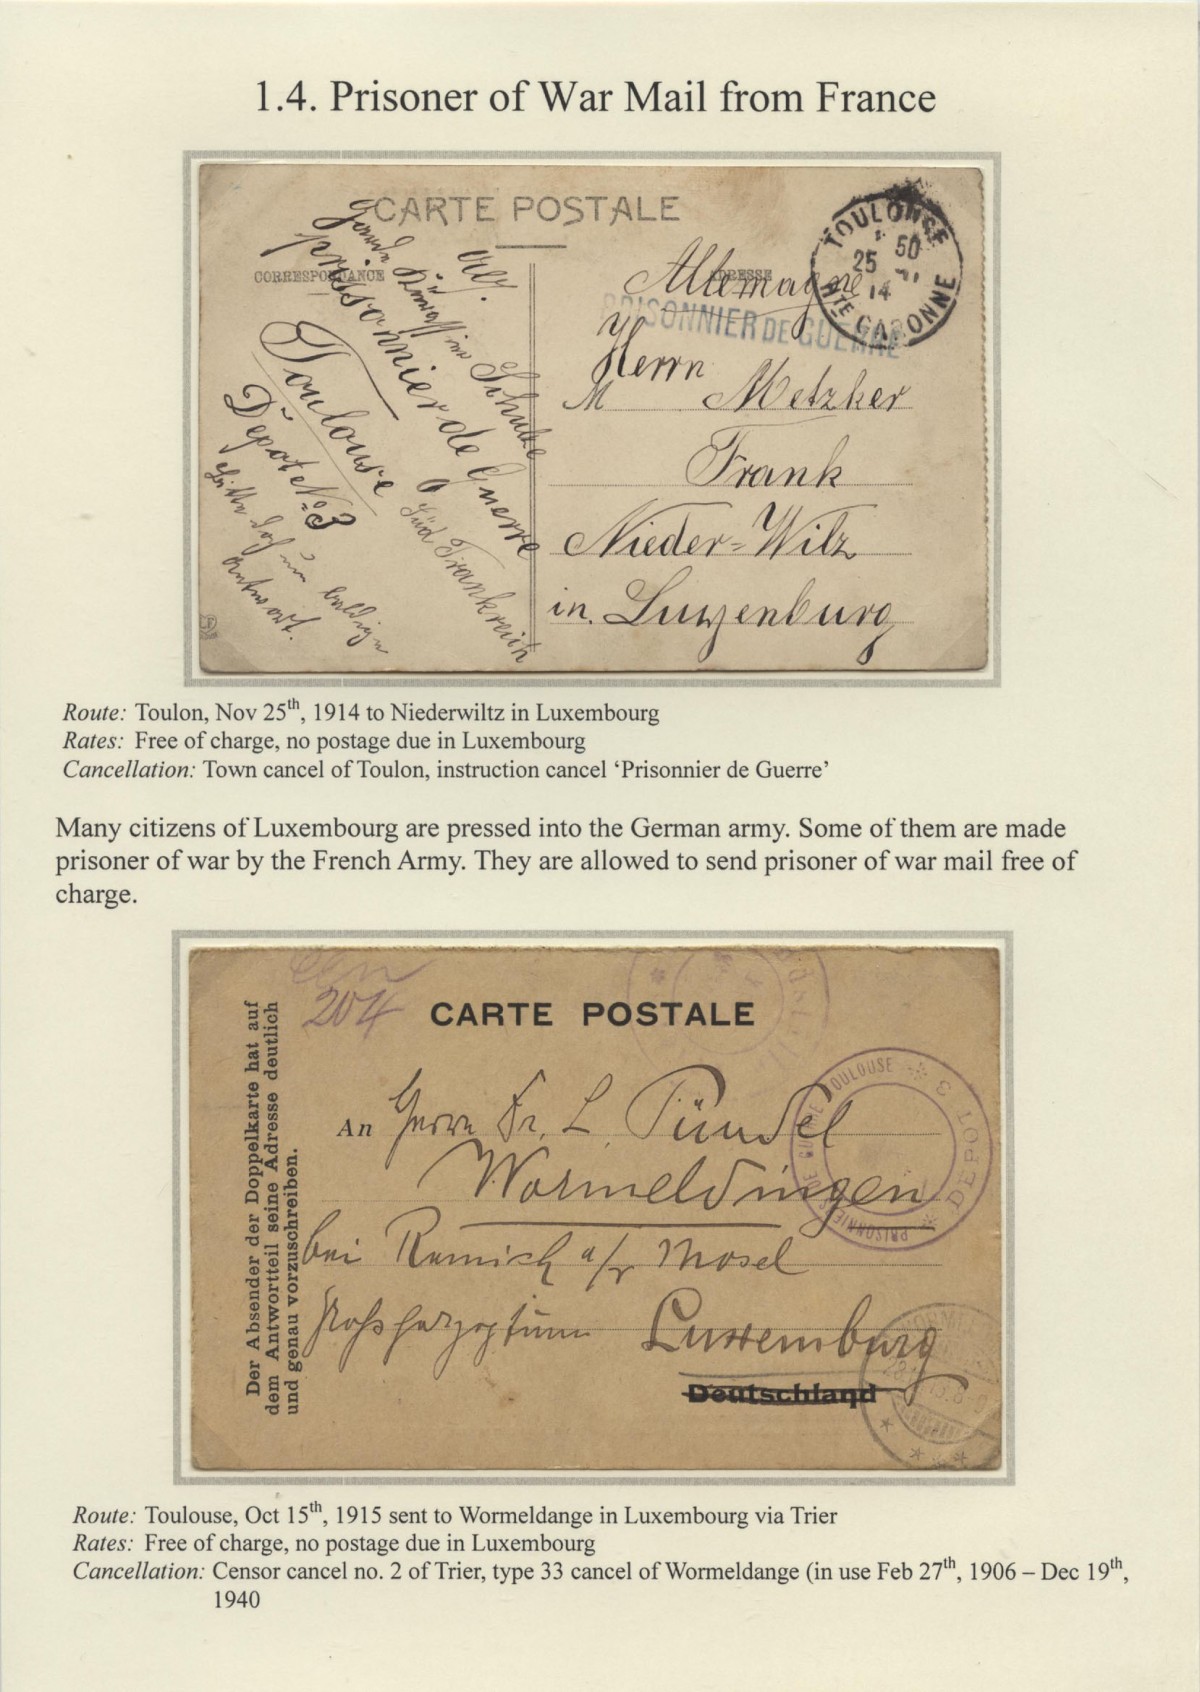 1.4. Prisoner of War Mail from France
CARTE POSTALE
CORRESPONDANCE
ADRESSE
TOULOUSE
50
25
14
HTE GARONNE
Allemagne
PRISONNIER DE GUERRE
Herrn
M Metzker
Frank
Nieder=Wilz
in. Luxenburg
Abs.
prissonnier de Guerre
Toulouse
Depot No. 3
Süd Frankreich
Bitte doch um baldige
Antwort.
Route: Toulon, Nov 25th, 1914 to Niederwiltz in Luxembourg
Rates: Free of charge, no postage due in Luxembourg
Cancellation: Town cancel of Toulon, instruction cancel ‘Prisonnier de Guerre’
Many citizens of Luxembourg are pressed into the German army. Some of them are made
prisoner of war by the French Army. They are allowed to send prisoner of war mail free of
charge.
204
CARTE POSTALE
Der Absender der Doppelkarte hat auf
dem Antwortteil seine Adresse deutlich
und genau vorzuschreiben.
PRISONNIERS DE GUERRE TOULOUSE
DEPOT 3
An Herrn Dr. L. Pündel
Wormeldingen
bei Remich a/r Mosel
Großherzogtum Luxemburg
Deutschland
Route: Toulouse, Oct 15th, 1915 sent to Wormeldange in Luxembourg via Trier
Rates: Free of charge, no postage due in Luxembourg
Cancellation: Censor cancel no. 2 of Trier, type 33 cancel of Wormeldange (in use Feb 27th, 1906 – Dec 19th,
1940